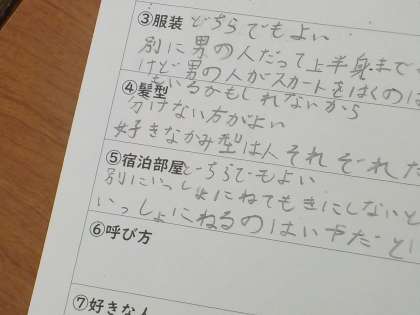 ③服装 どちらでもよい
別に男の人だって上半身まで
けど男の人がスカートをはくのは
もいるかもしれないから
④髪型
分けない方がよい
好きなかみ型は人それぞれだ
⑤宿泊部屋 どちらでもよい
別にいっしょにねてもきにしないと
いっしょにねるのはいやだと
⑥呼び方
⑦好きな人